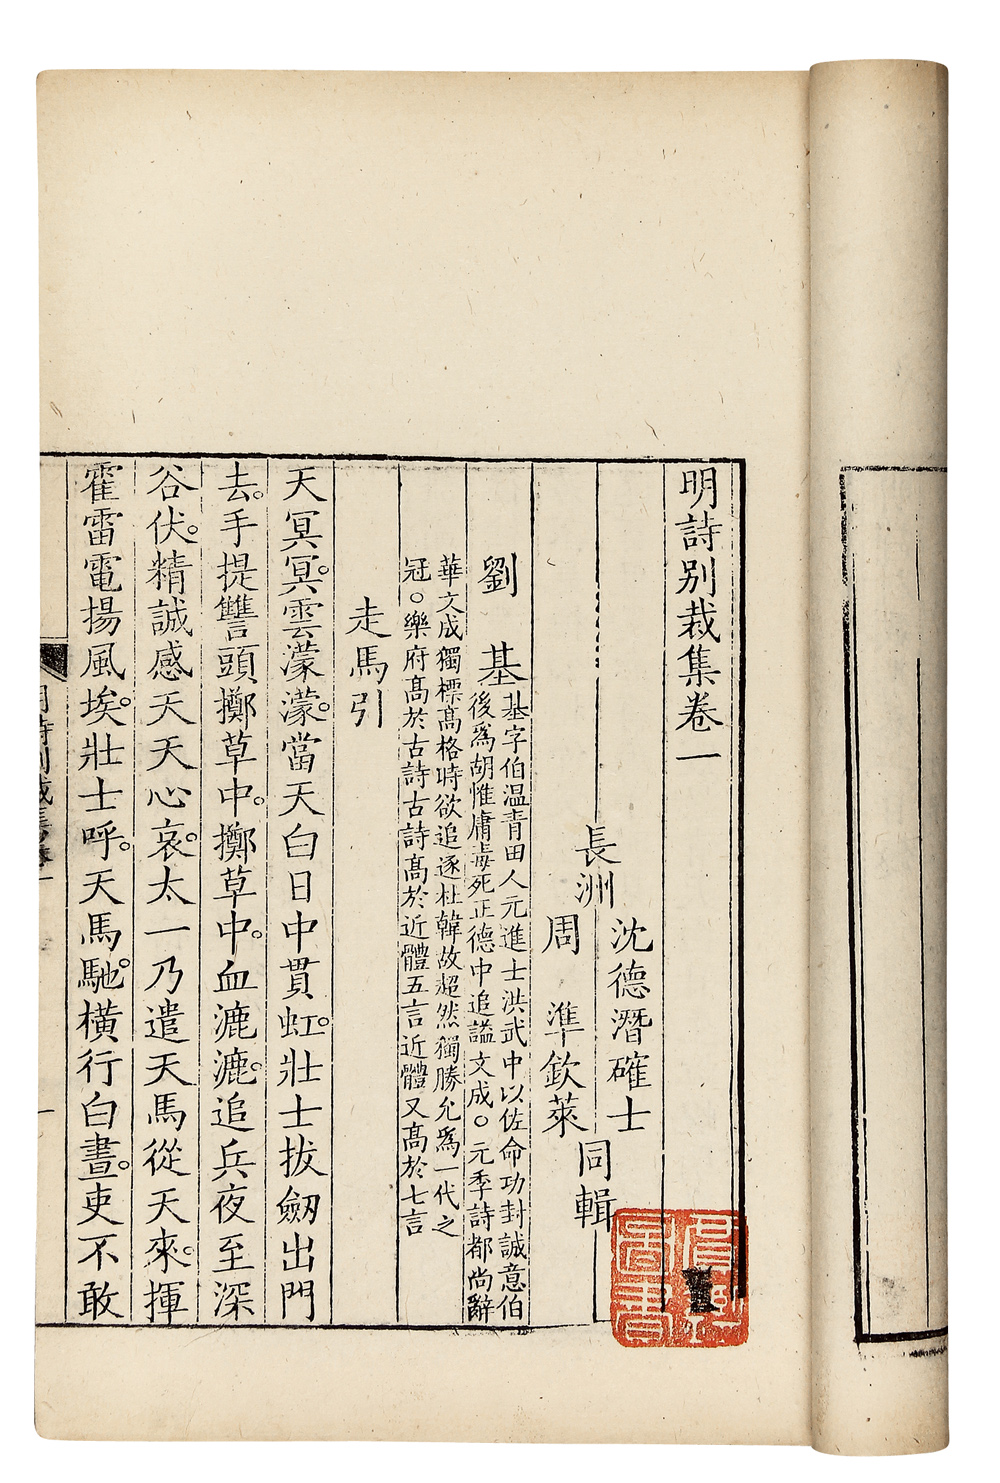 明詩別裁集卷一
長洲
沈德潛確士
周　準欽萊
同輯
劉　基
基字伯温青田人元進士洪武中以佐命功封誠意伯
後爲胡惟庸毒死正德中追謚文成。元季詩都尚辭
華文成獨標高格時欲追逐杜韓故超然獨勝允爲一代之
冠。樂府高於古詩古詩高於近體五言近體又高於七言
走馬引
天冥冥。雲濛濛。當天白日中貫虹。壯士拔劒出門
去。手提讐頭擲草中。擲草中。血漉漉。追兵夜至深
谷伏。精誠感天天心哀。太一乃遣天馬從天來。揮
霍雷電揚風埃。壯士呼。天馬馳。橫行白晝。吏不敢
明詩別裁集卷一
一